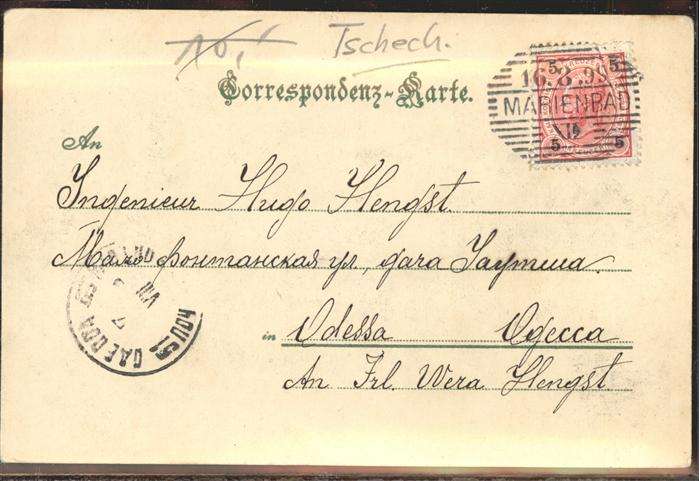 10,- Tschech.
Correspondenz-Karte.
5 5
16.8.99
MARIENBAD
5 5
An
Ingenieur Hugo Hengst.
Мало фонтанская ул, дача
in Odessa Одесса
An Frl. Wera Hengst.
ОДЕССА